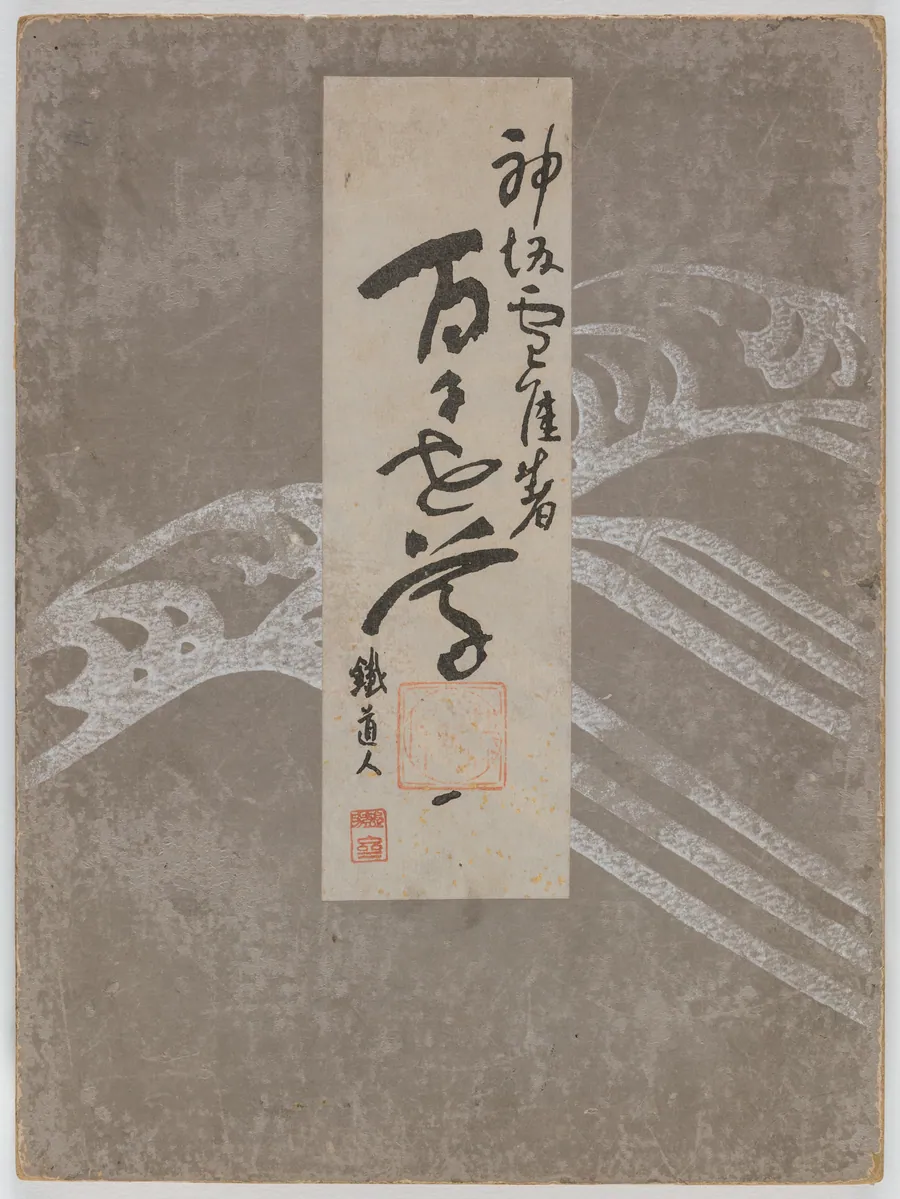 神坂雪佳著
百々世草
一
鐵道人